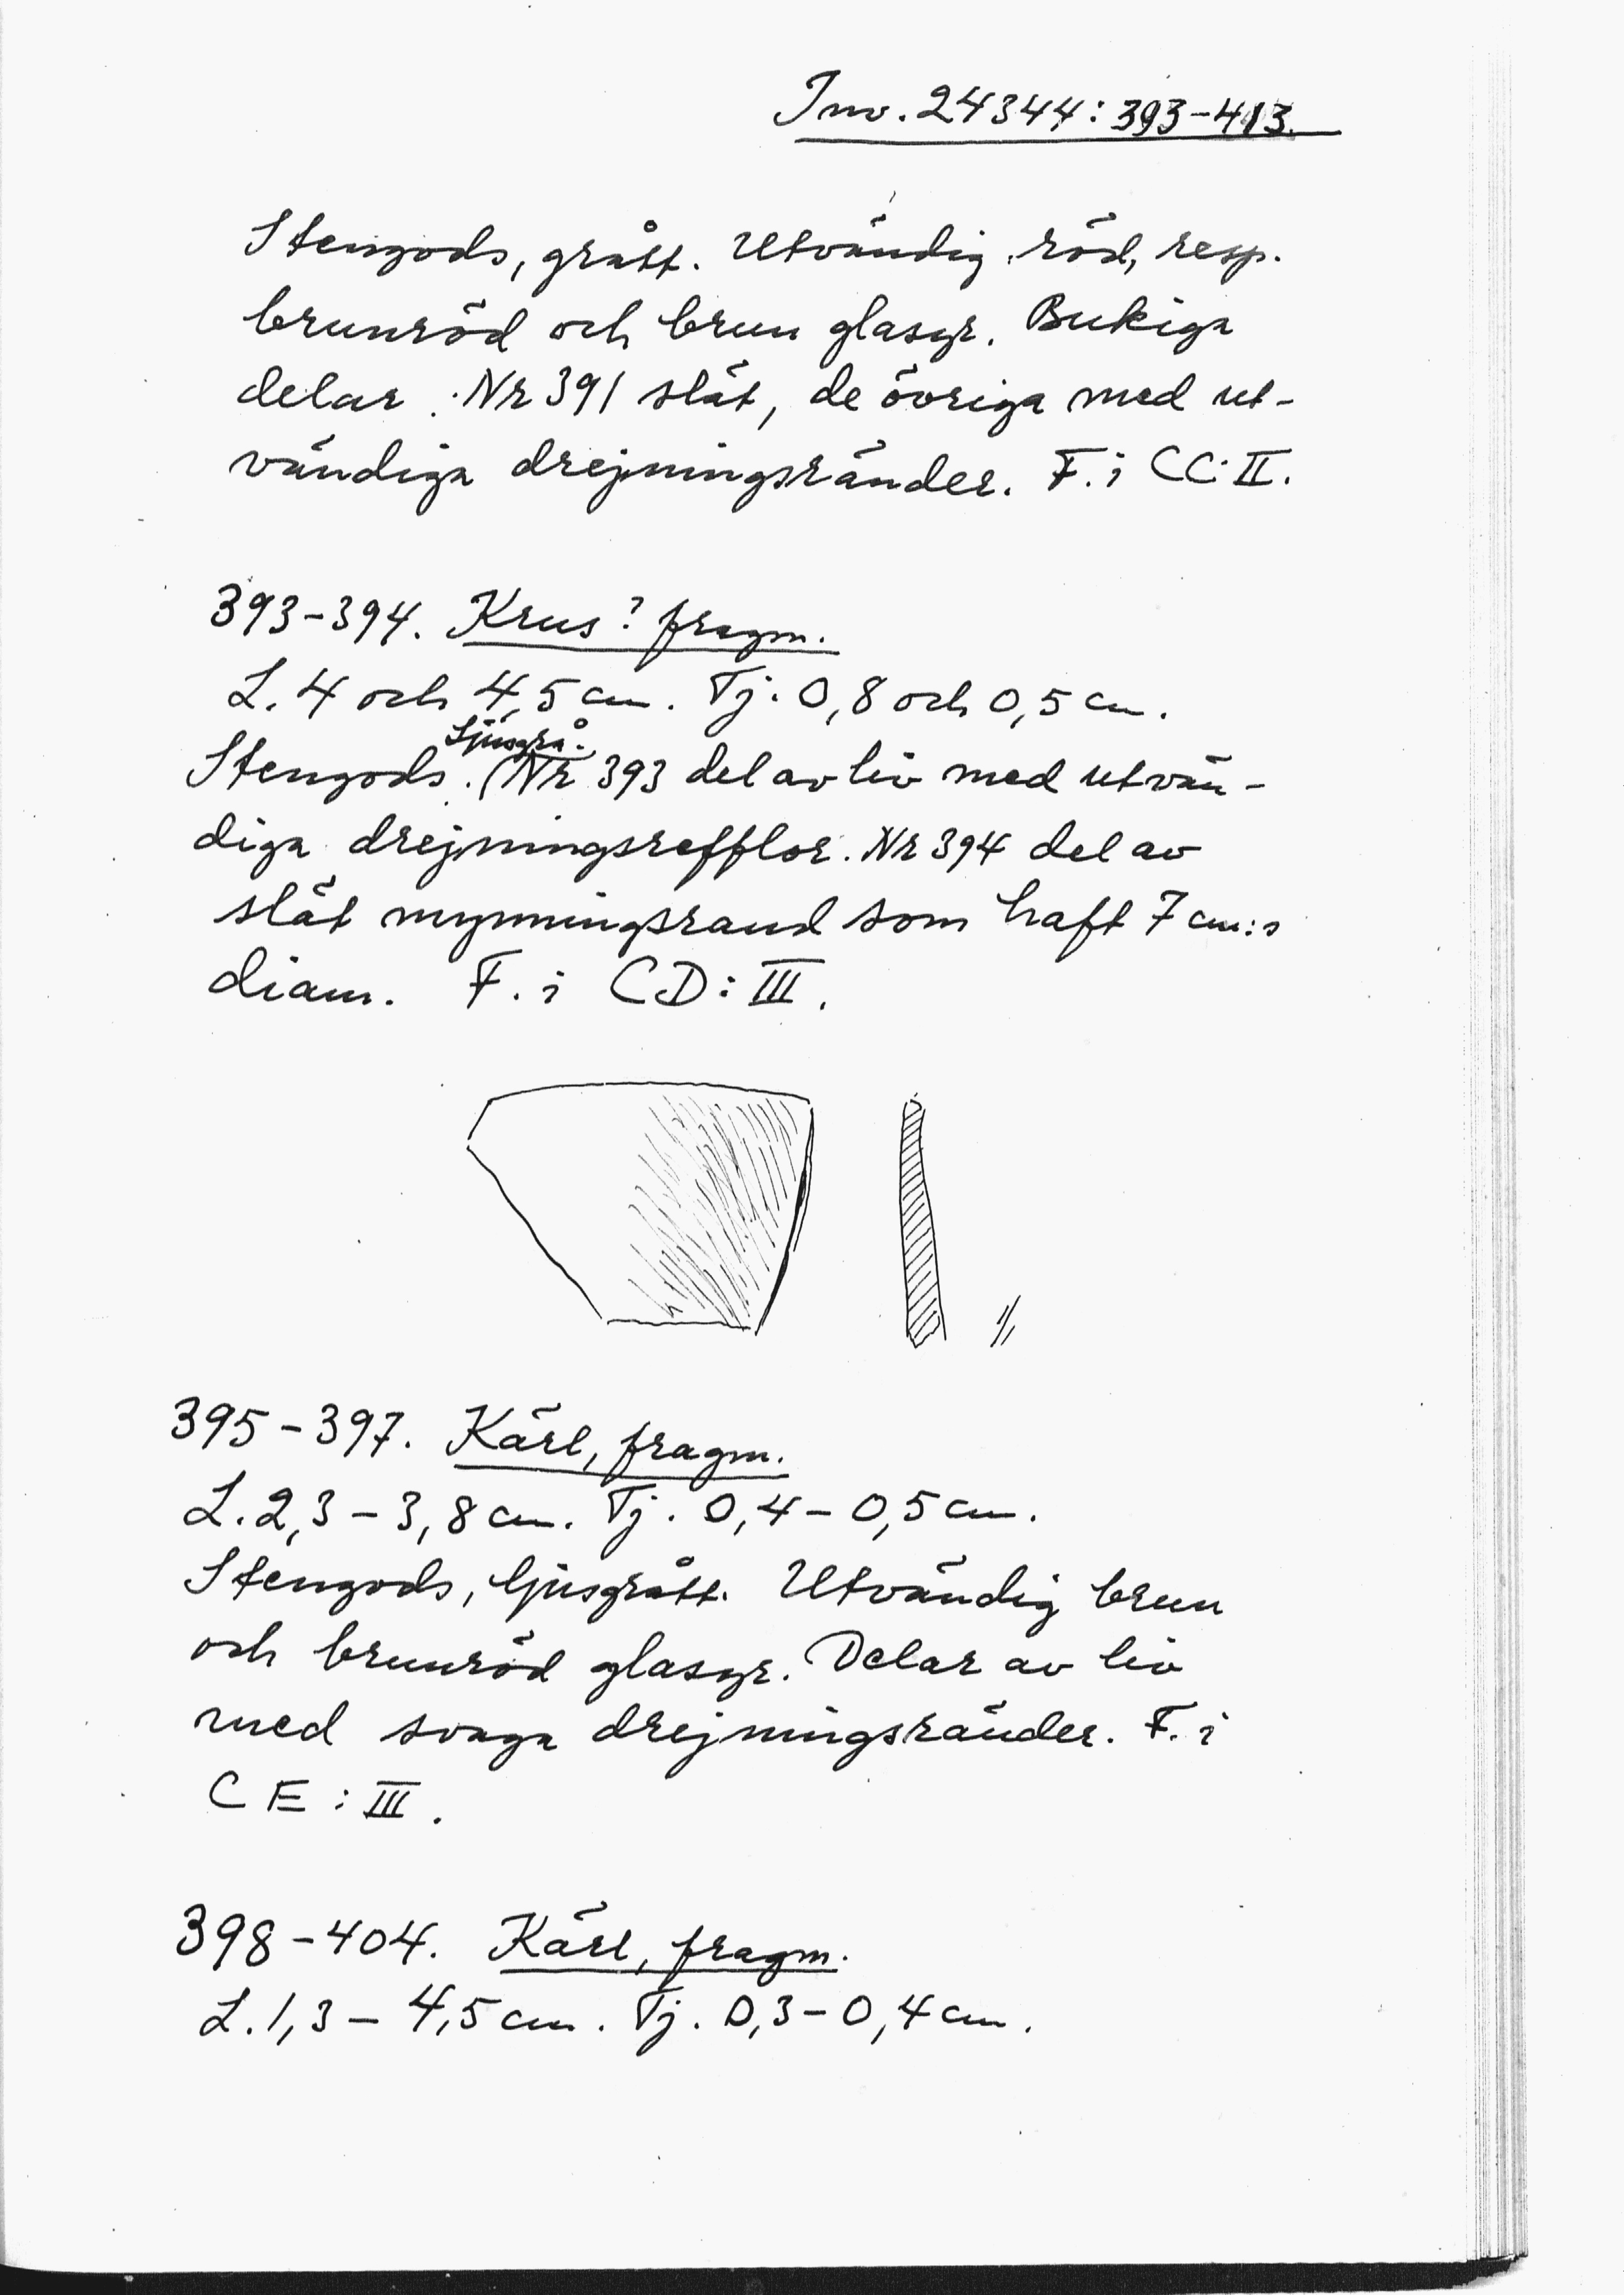 Inv. 24344: 393-413.
Stengods, grått. Utvändig röd, resp.
brunröd och brun glasyr. Bukiga
delar. Nr 391 slät, de övriga med ut-
vändiga drejningsränder. F. i CC:II.
393-394. Krus? fragm.
L. 4 och 4,5 cm. Tj. 0,8 och 0,5 cm.
Ljusgrå.
Stengods. (Nr 393 del av liv med utvän-
diga drejningsrefflor. Nr 394 del av
slät mynningsrand som haft 7 cm:s
diam. F. i CD:III.
1/1
395-397. Kärl, fragm.
L. 2,3-3,8 cm. Tj. 0,4-0,5 cm.
Stengods, ljusgrått. Utvändig brun
och brunröd glasyr. Delar av liv
med svaga drejningsränder. F. i
CE:III.
398-404. Kärl, fragm.
L. 1,3-4,5 cm. Tj. 0,3-0,4 cm.